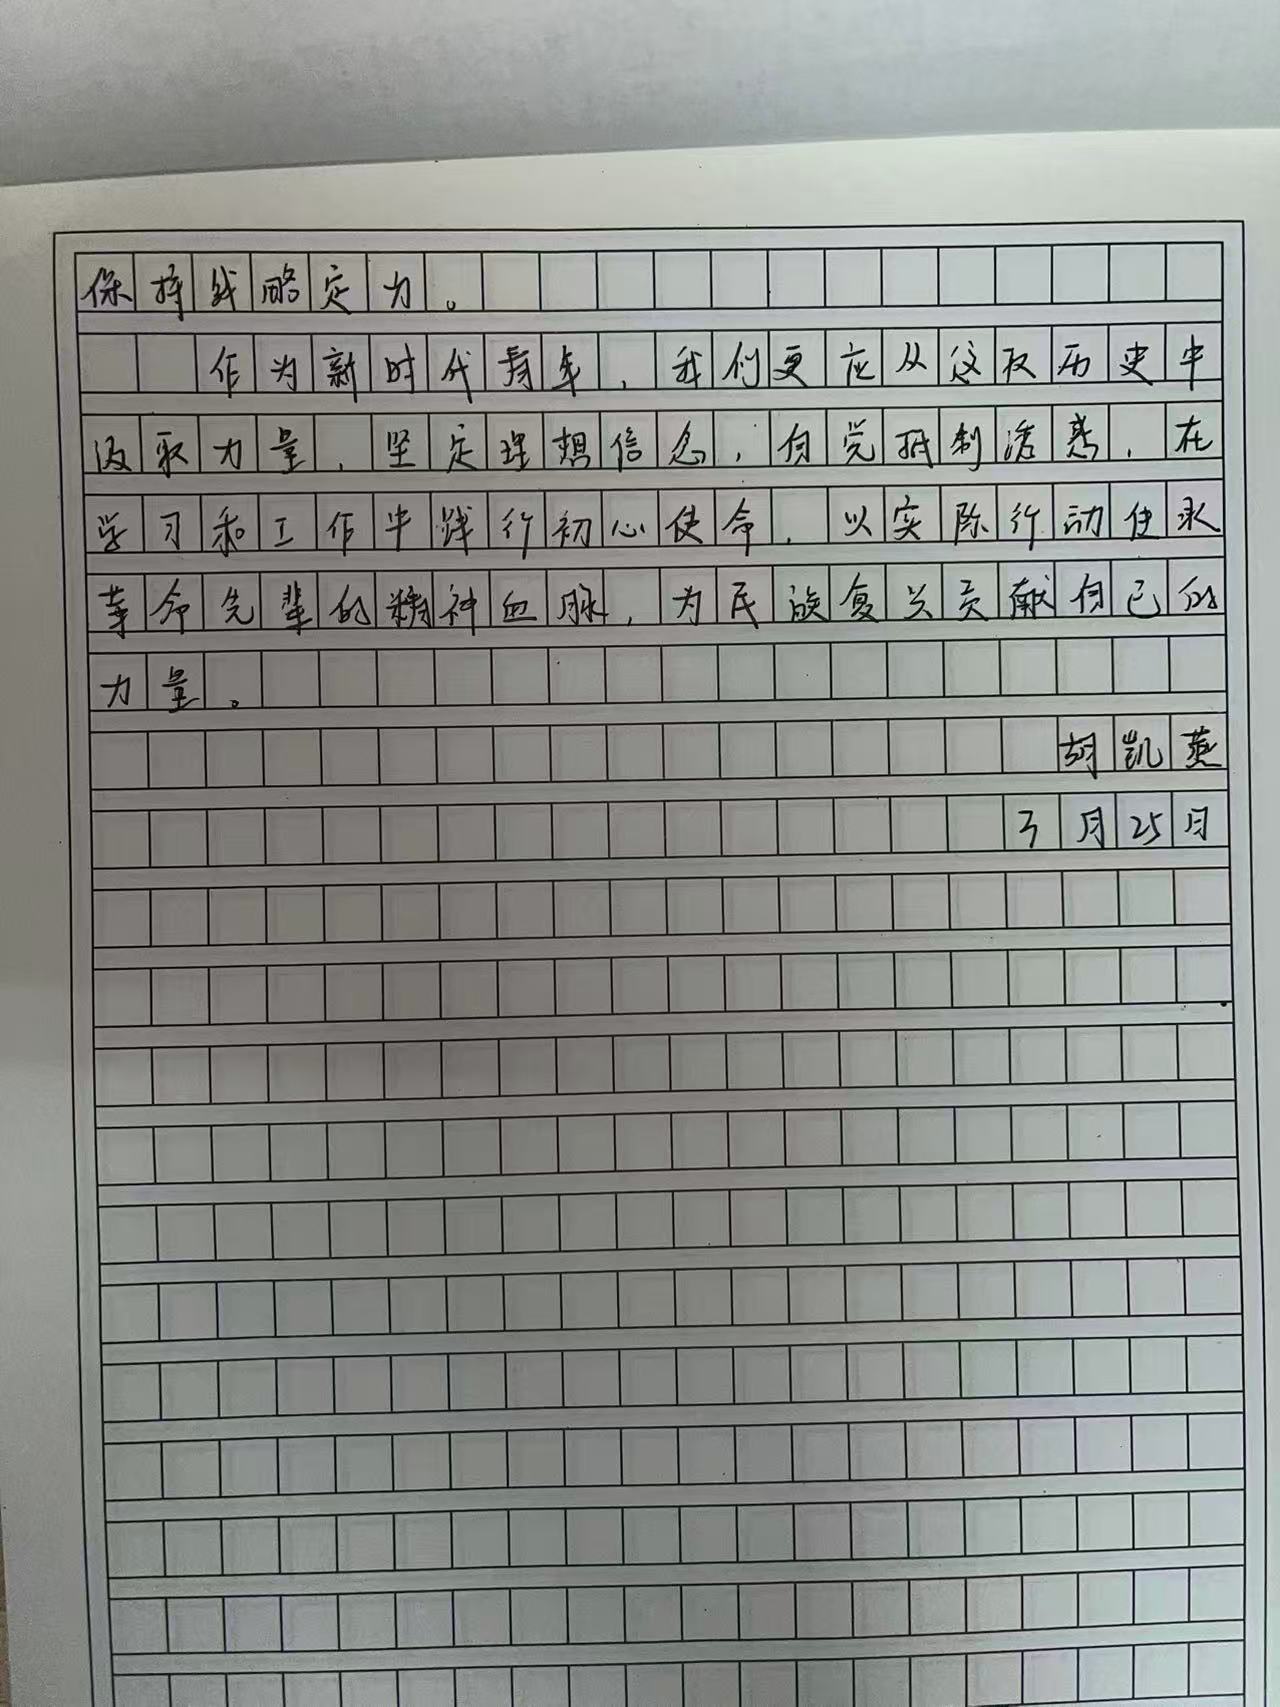 保持战略定力。
作为新时代青年，我们更应从这段历史中
汲取力量，坚定理想信念，自觉抵制诱惑，在
学习和工作中践行初心使命，以实际行动传承
革命先辈的精神血脉，为民族复兴贡献自己的
力量。
胡凯燕
3月25日